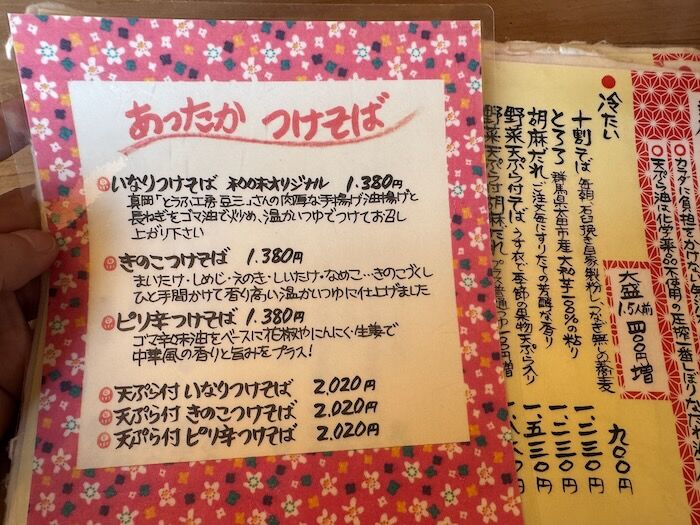 あったか つけそば
いなりつけそば 和の味オリジナル 1.380円
真岡「とうふ工房豆三」さんの肉厚な手揚げ油揚げと
長ねぎをゴマ油で炒め、温かいつゆでつけてお召し
上がり下さい
きのこつけそば 1.380円
まいたけ・しめじ・えのき・しいたけ・なめこ…きのこづくし
ひと手間かけて香り高い温かいつゆに仕上げました
ピリ辛つけそば 1.380円
ゴマ辛味油をベースに花椒やにんにく・生姜で
中華風の香りと旨みをプラス!
天ぷら付 いなりつけそば 2.020円
天ぷら付 きのこつけそば 2.020円
天ぷら付 ピリ辛つけそば 2.020円
カラダに負担をかけない
天ぷら油は化学薬品不使用の圧搾一番しぼり
大盛 1.5人前 四〇〇円増
冷たい
十割そば 毎朝、石臼挽き自家製粉しつなぎ無しの蕎麦 九〇〇円
とろろ 群馬県太田市産大和芋100%の粘り 一、二三〇円
胡麻だれ ご注文毎にすりたての芳醇な香り 一、二三〇円
野菜天ぷら付そば うす衣で季節の果物天ぷら入り 一、五三〇円
野菜天ぷら付胡麻だれ